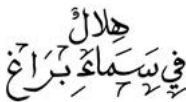 هِلَالٌ
فِي سَمَاءِ بْرَاغ